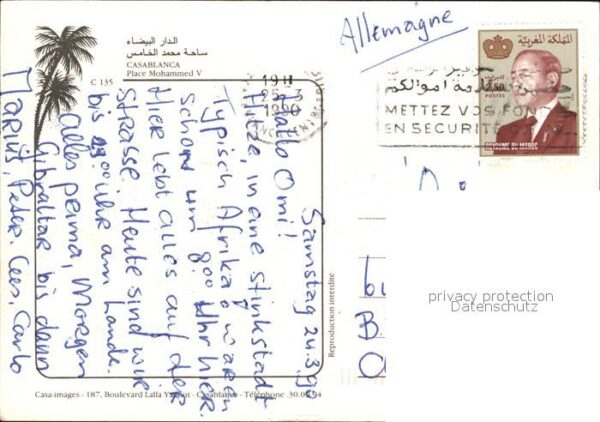 الدار البيضاء
ساحة محمد الخامس
CASABLANCA
Place Mohammed V
C 135
Allemagne
المملكة المغربية
2,50
POSTES
ROYAUME DU MAROC
19H
25-3
1990
اموالكم
METTEZ VOS FON
EN SECURITE
Samstag 24.3.90
Hallo Omi!
Hitze, in eine stinkstadt
Typisch Afrika, waren
schon um 8.00 Uhr hier.
Hier lebt alles auf der
Strasse. Heute sind wir
bis 19.00 Uhr am Lande.
alles prima, Morgen
Gibraltar bis dann
Marius, Peter, Cees, Carlo
Reproduction interdite
privacy protection
Datenschutz
Casa-images - 187, Boulevard Lalla Yacout - Casablanca - Téléphone .30.09.94